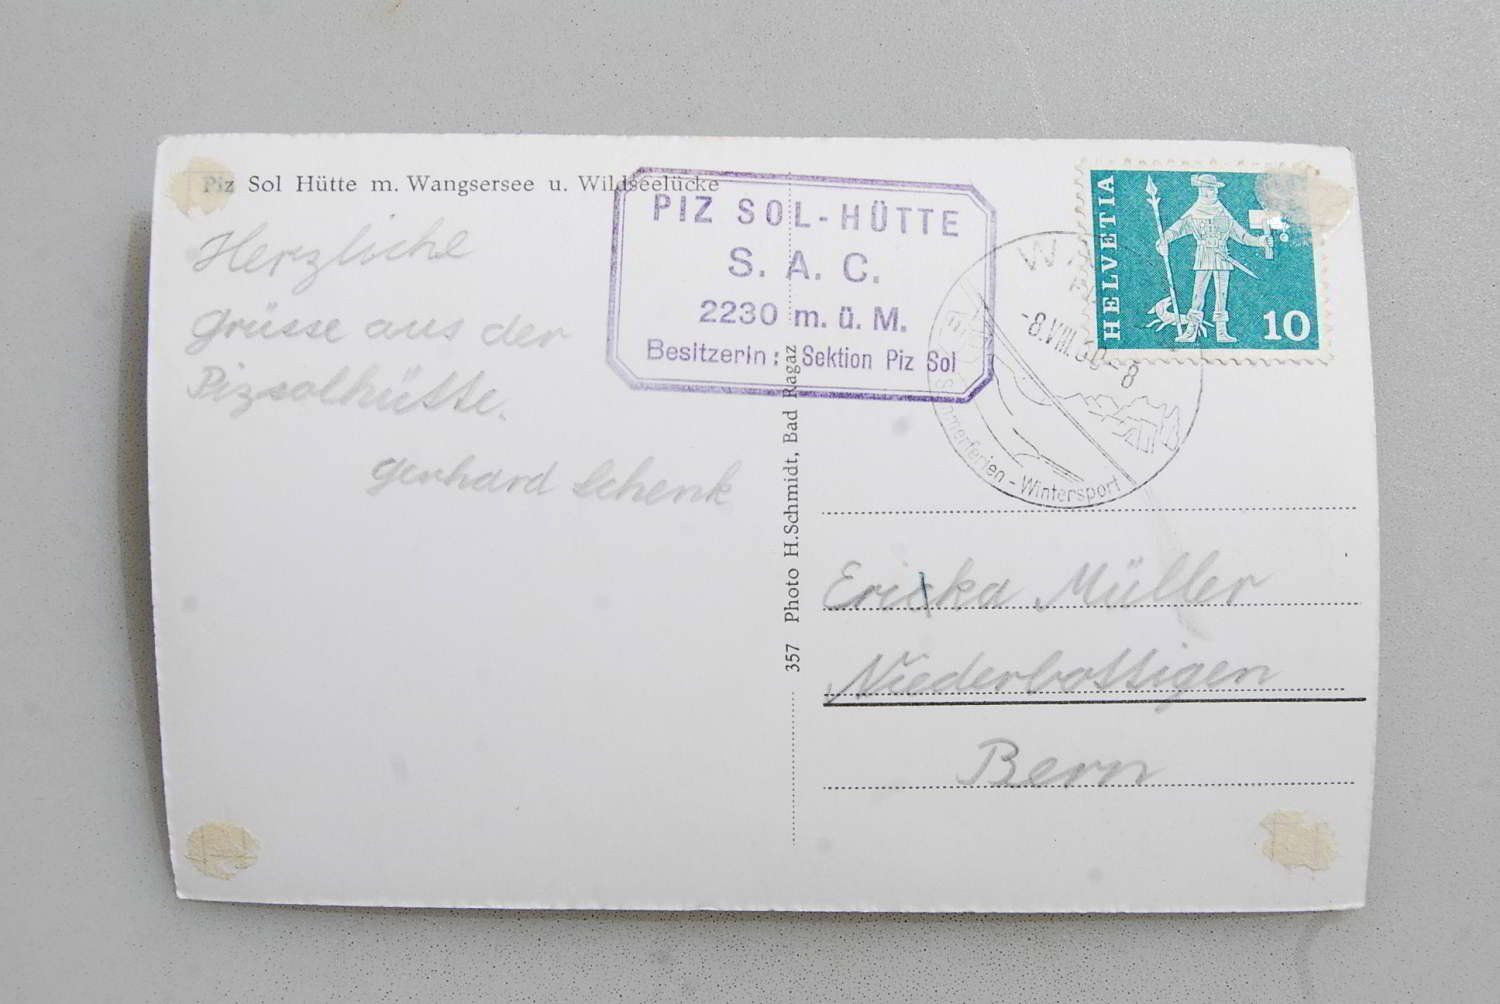 Piz Sol Hütte m. Wangsersee u. Wildseelücke
Herzliche
Grüsse aus der
Pizsolhütte.
Gerhard Schenk
PIZ SOL-HÜTTE
S. A. C.
2230 m. ü. M.
Besitzerin: Sektion Piz Sol
HELVETIA
10
-8.VIII.60-8
Sommerferien - Wintersport
357 Photo H. Schmidt, Bad Ragaz
Ericka Müller
Niederbottigen
Bern